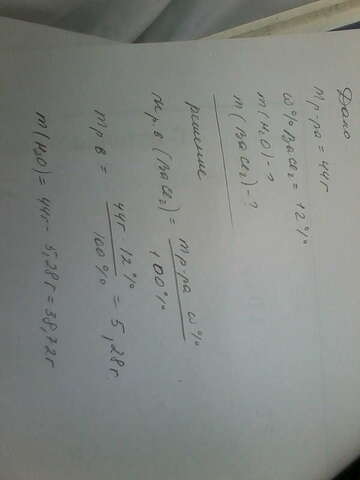 Дано
mр-ра = 44г
ω% BaCl₂ = 12%
m(H₂O) - ?
m(BaCl₂) - ?
решение
mр.в (BaCl₂) = mр-ра ω% / 100%
mрв = 44г · 12% / 100% = 5,28г.
m(H₂O) = 44г - 5,28г = 38,72г